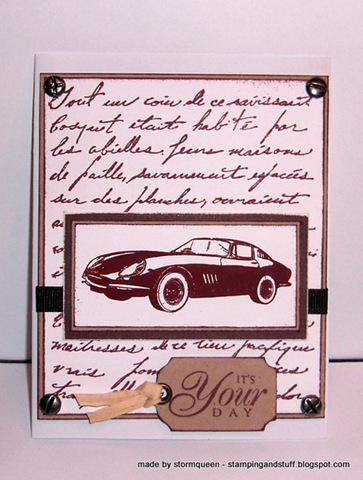 Tout un coin de ce ravissant
bosquet était habité par
les abeilles. Leurs maisons
de paille, savamment espacées
sur des planches, ouvraient
maîtresses de ce lieu pacifique
vrais
IT'S
Your
DAY
made by stormqueen - stampingandstuff.blogspot.com